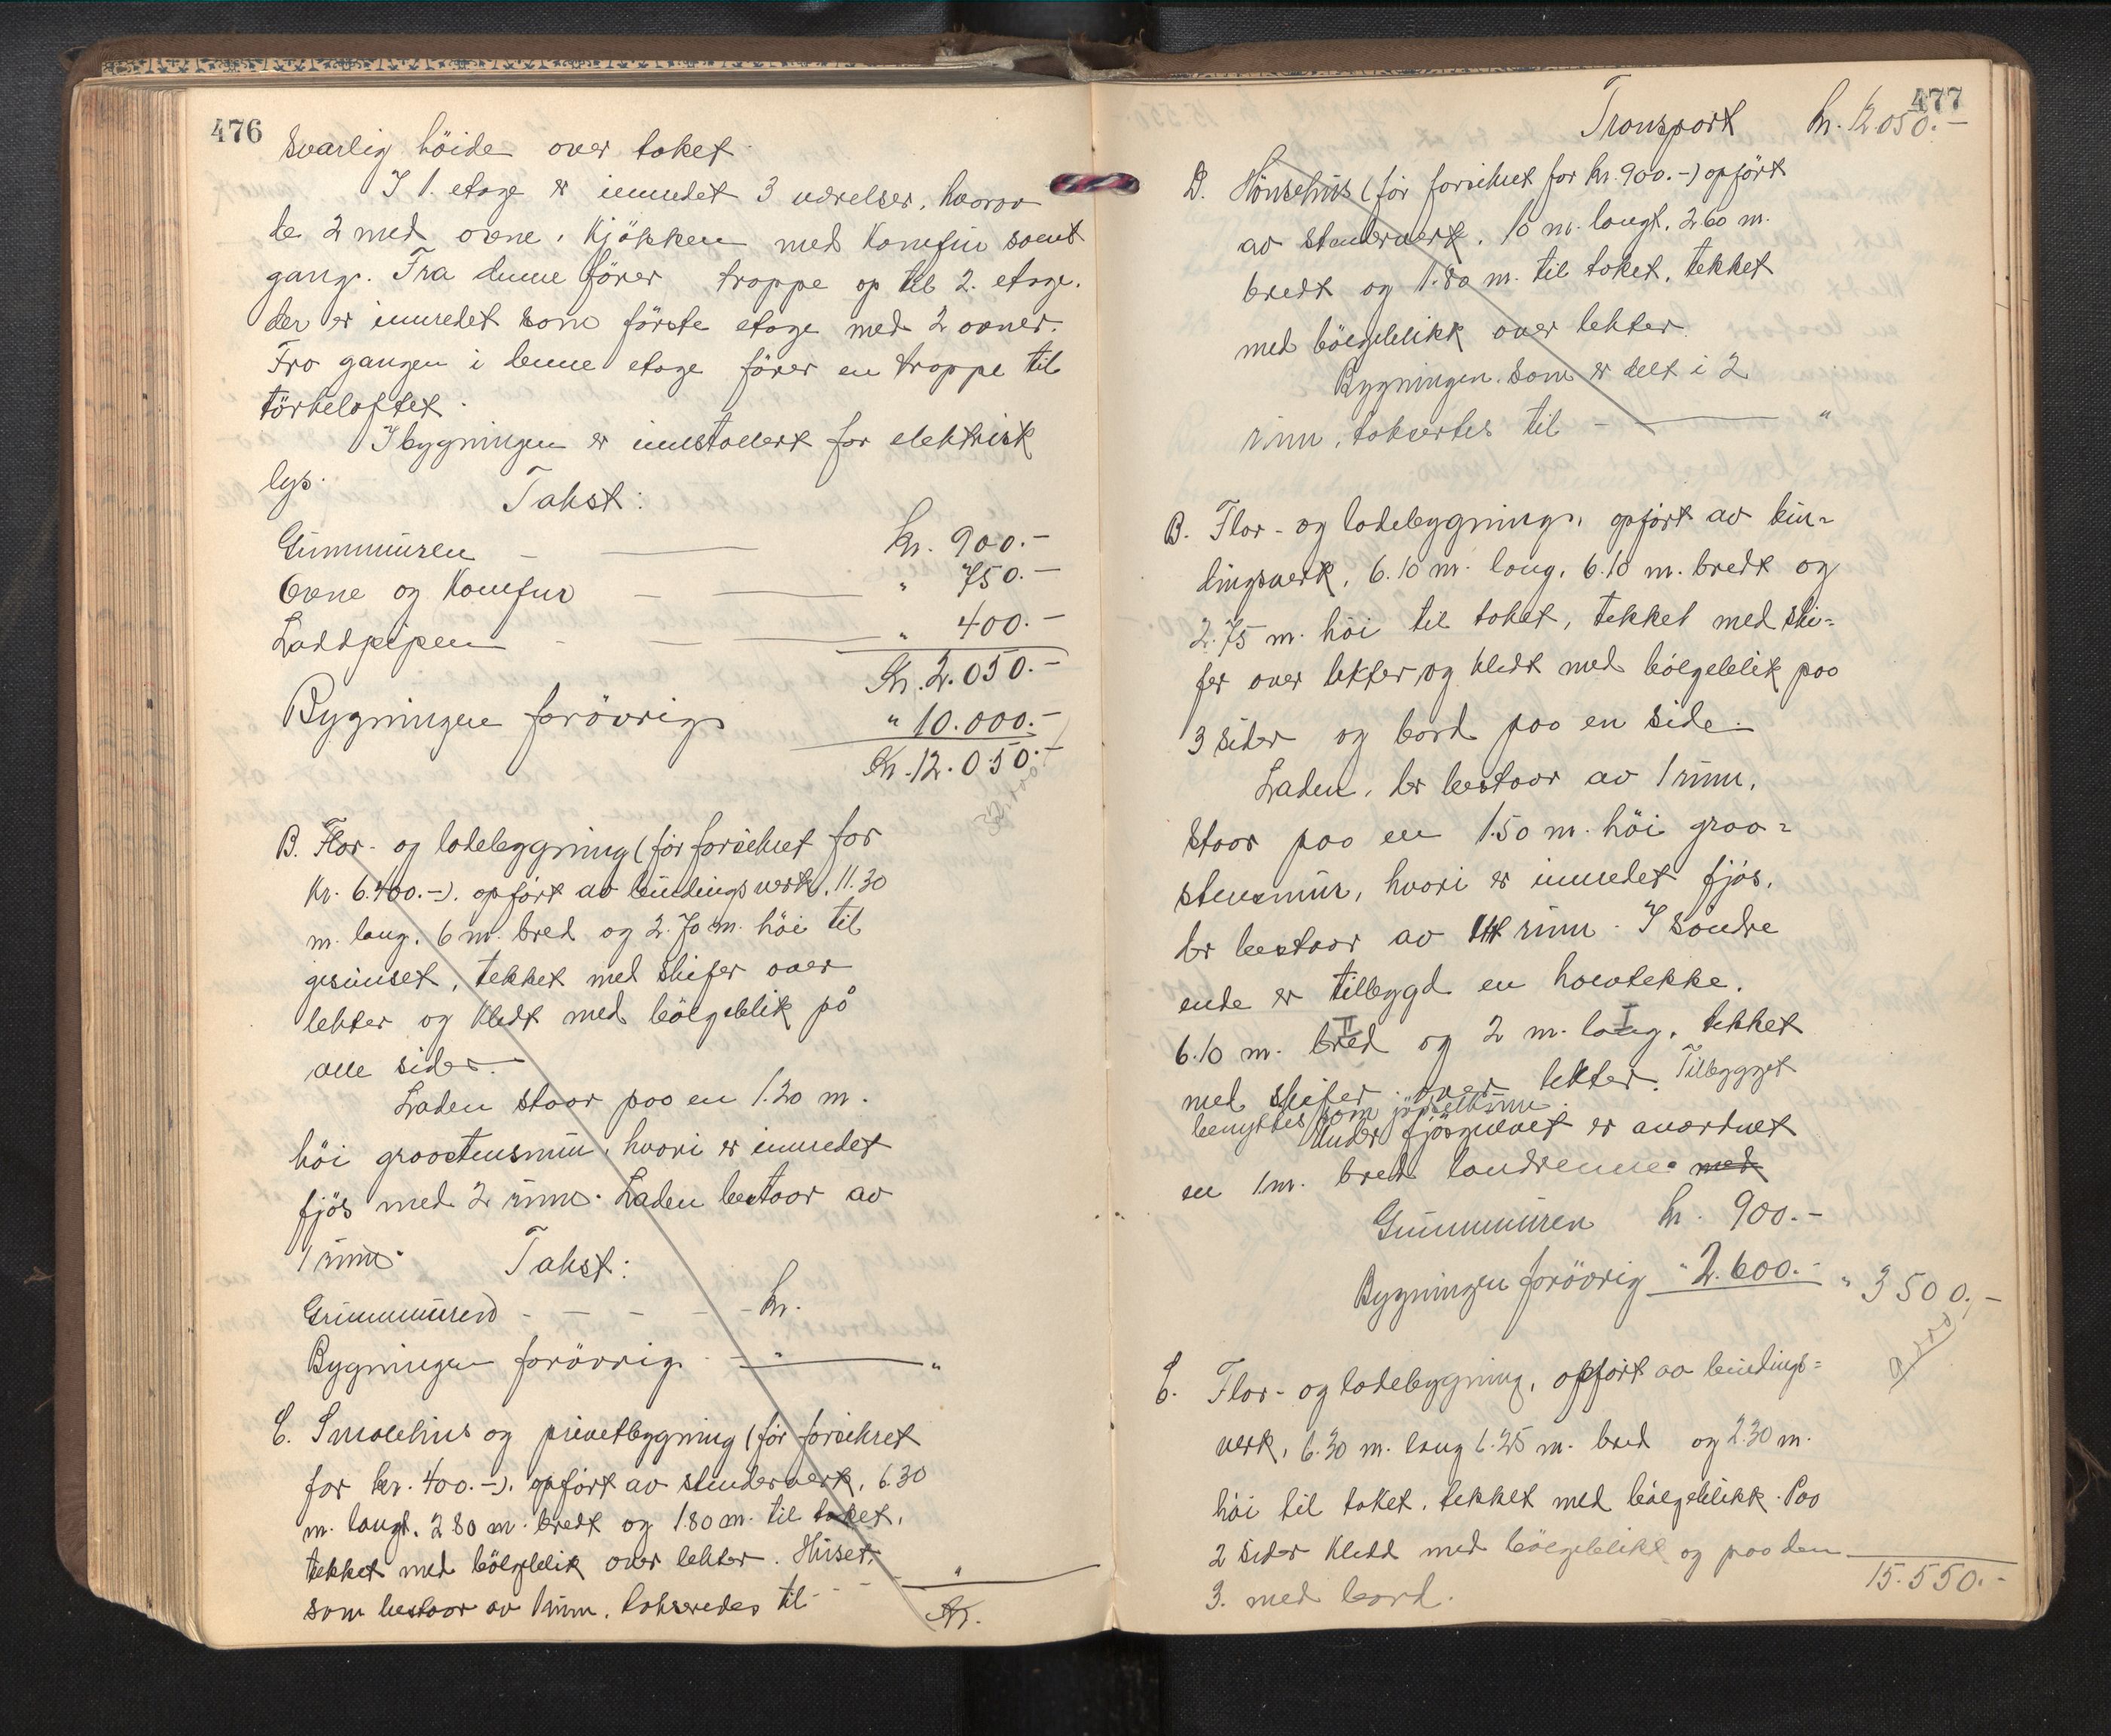 476
svarlig höide over taket.
I 1. etage er innredet 3 værelser, hvorav
de 2 med ovne, Kjökken med Komfur samt
gang. Fra denne förer trappe op til 2. etage,
der er innredet som förste etage med 2 ovner.
Fra gangen i denne etage förer en trappe til
törkeloftet.
I bygningen er innstallert for elektrisk
lys.
Takst:
Grunnmuren - — Kr. 900.-
Ovne og Komfur - — " 750.-
Laddpipen - — " 400.-
Kr. 2.050.-
Bygningen forövrig " 10.000.-
Kr. 12.050.-
B. Flor- og ladebyggning (för forsikret for
Kr. 6.400.-). opfört av bindingsverk, 11.30
m. lang, 6 m. bred og 2.70 m. höi til
gesimset, tekket med skifer over
lekter og kledt med bölgeblik på
alle sider.-
Laden staar paa en 1.20 m.
höi graastensmur, hvori er innredet
fjös med 2 rum. Laden bestaar av
1 rum.
Takst:
Grunnmuren - - - - - Kr.
Bygningen forövrig. - " — "
C. Smalehus og privetbyggning (för forsikret
for kr. 400.-). opfört av stenderverk, 6.30
m. langt, 2 80 m. bredt og 1.80 m. til taket,
tekket med bölgeblik over lekter. Huset,
som bestaar av 1 rum, takseredes til - - - "
Kr.
477
Transport Kr. 12.050.-
D. Hönsehus (för forsikret for kr. 900.-) opfört
av stenderverk, 10 m. langt, 2 60 m.
bredt og 1.80 m. til taket, tekket
med bölgeblikk over lekter.
Bygningen, som er delt i 2
rum, taksertes til - — "
B. Flor- og ladebygning, opfört av bin-
dingsverk, 6.10 m. lang, 6.10 m. bredt og
2.75 m. höi til taket, tekket med ski-
fer over lekter og kledt med bölgeblik paa
3 sider og bord paa en side.-
Laden, der bestaar av 1 rum,
staar paa en 1.50 m. höi graa-
stensmur, hvori er innredet fjös,
der bestaar av rum. I söndre
ende er tilbygd en
6.10 m. bred og 2 m. lang, tekket
II I
med skifer over lekter. Tilbygget
benyttes som
Under fjösgulvet er anordnet
en 1 m. bred landrenne. med
Grunnmuren Kr. 900.-
Bygningen forövrig " 2.600.- " 3500.-
C. Flor- og ladebygning, opfört av bindings-
verk, 6.30 m. lang 6.25 m. bred og 2.30 m.
höi til taket, tekket med bölgeblikk. Paa
2 sider kledd med bölgeblikk og paa den
3. med bord.
15.550.-